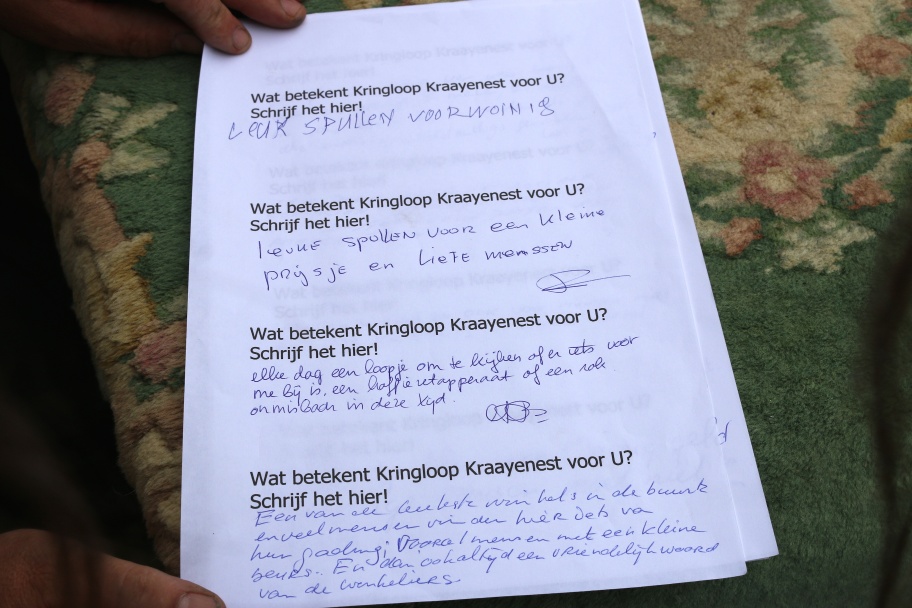 Wat betekent Kringloop Kraayenest voor U?
Schrijf het hier!
LEUK SPULLEN VOOR WOINIG
Wat betekent Kringloop Kraayenest voor U?
Schrijf het hier!
leuke spullen voor een kleine
prijsje en liefe menssen
Wat betekent Kringloop Kraayenest voor U?
Schrijf het hier!
elke dag een loopje om te kijken of er iets voor
me bij is, een koffiezetapperaat of een rok.
onmisbaar in deze tijd.
Wat betekent Kringloop Kraayenest voor U?
Schrijf het hier!
Een van de leukste winkels in de buurt
en veel mensen vinden hier iets van
hun gading, vooral mensen met een kleine
beurs. En dan ook altijd een vriendelijk woord
van de winkeliers.